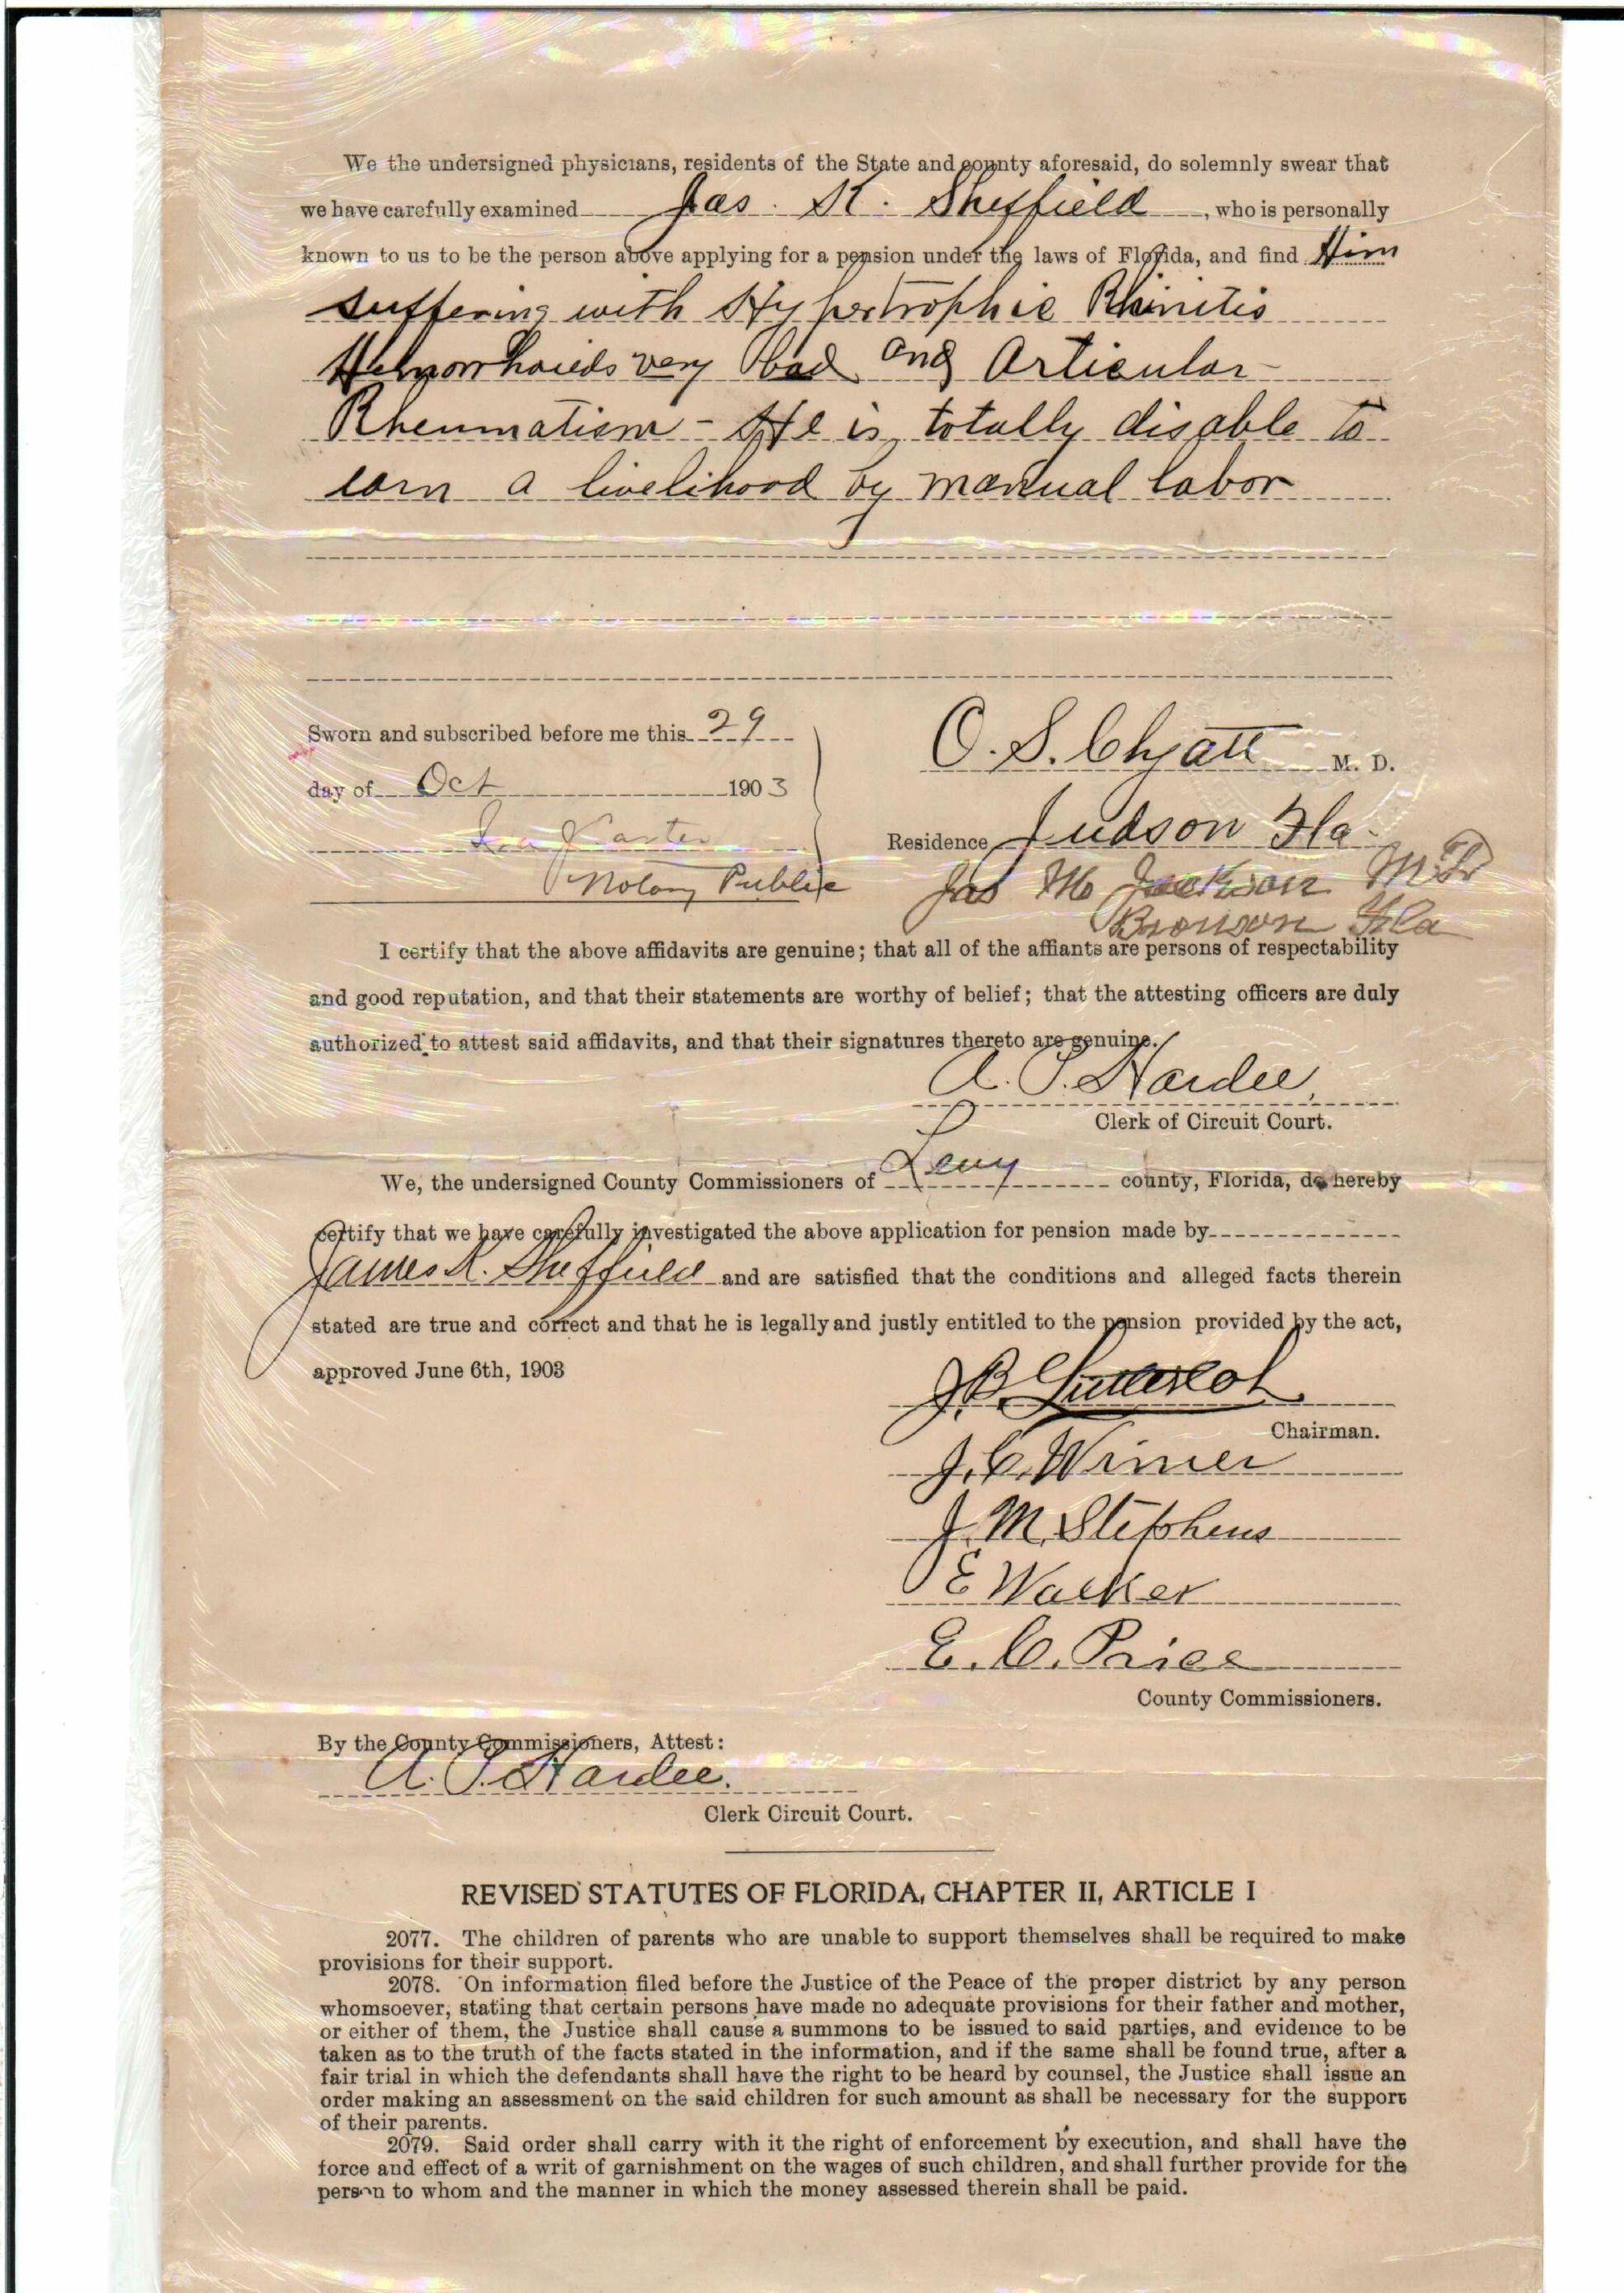 We the undersigned physicians, residents of the State and county aforesaid, do solemnly swear that
we have carefully examined Jas. K. Sheffield, who is personally
known to us to be the person above applying for a pension under the laws of Florida, and find Him
suffering with Hypertrophic Rhinitis
Hemorrhoids very bad and Articular
Rheumatism - He is totally disable to
earn a livelihood by manual labor
Sworn and subscribed before me this 29
day of Oct 1903
Carter
Notary Public
O. S. M. D.
Residence Judson Fla.
Jas M Jackson M.D.
Bronson Fla
I certify that the above affidavits are genuine; that all of the affiants are persons of respectability
and good reputation, and that their statements are worthy of belief; that the attesting officers are duly
authorized to attest said affidavits, and that their signatures thereto are genuine.
A. S. Hardee,
Clerk of Circuit Court.
We, the undersigned County Commissioners of Levy county, Florida, do hereby
certify that we have carefully investigated the above application for pension made by
James K. Sheffield and are satisfied that the conditions and alleged facts therein
stated are true and correct and that he is legally and justly entitled to the pension provided by the act,
approved June 6th, 1903
J. B.
Chairman.
J. C. Wimer
J. M. Stephens
E Walker
E. C. Price
County Commissioners.
By the County Commissioners, Attest:
A. S. Hardee.
Clerk Circuit Court.
REVISED STATUTES OF FLORIDA, CHAPTER II, ARTICLE I
2077. The children of parents who are unable to support themselves shall be required to make
provisions for their support.
2078. On information filed before the Justice of the Peace of the proper district by any person
whomsoever, stating that certain persons have made no adequate provisions for their father and mother,
or either of them, the Justice shall cause a summons to be issued to said parties, and evidence to be
taken as to the truth of the facts stated in the information, and if the same shall be found true, after a
fair trial in which the defendants shall have the right to be heard by counsel, the Justice shall issue an
order making an assessment on the said children for such amount as shall be necessary for the support
of their parents.
2079. Said order shall carry with it the right of enforcement by execution, and shall have the
force and effect of a writ of garnishment on the wages of such children, and shall further provide for the
person to whom and the manner in which the money assessed therein shall be paid.